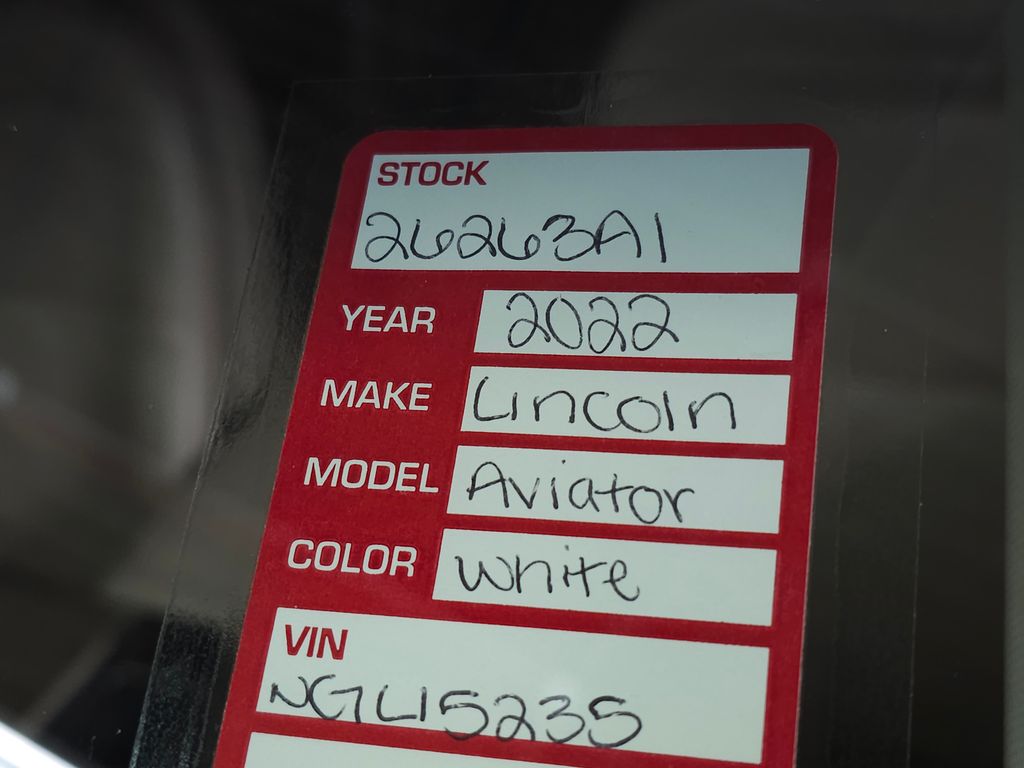 STOCK
26263A1
YEAR 2022
MAKE Lincoln
MODEL Aviator
COLOR White
VIN
NGL15235